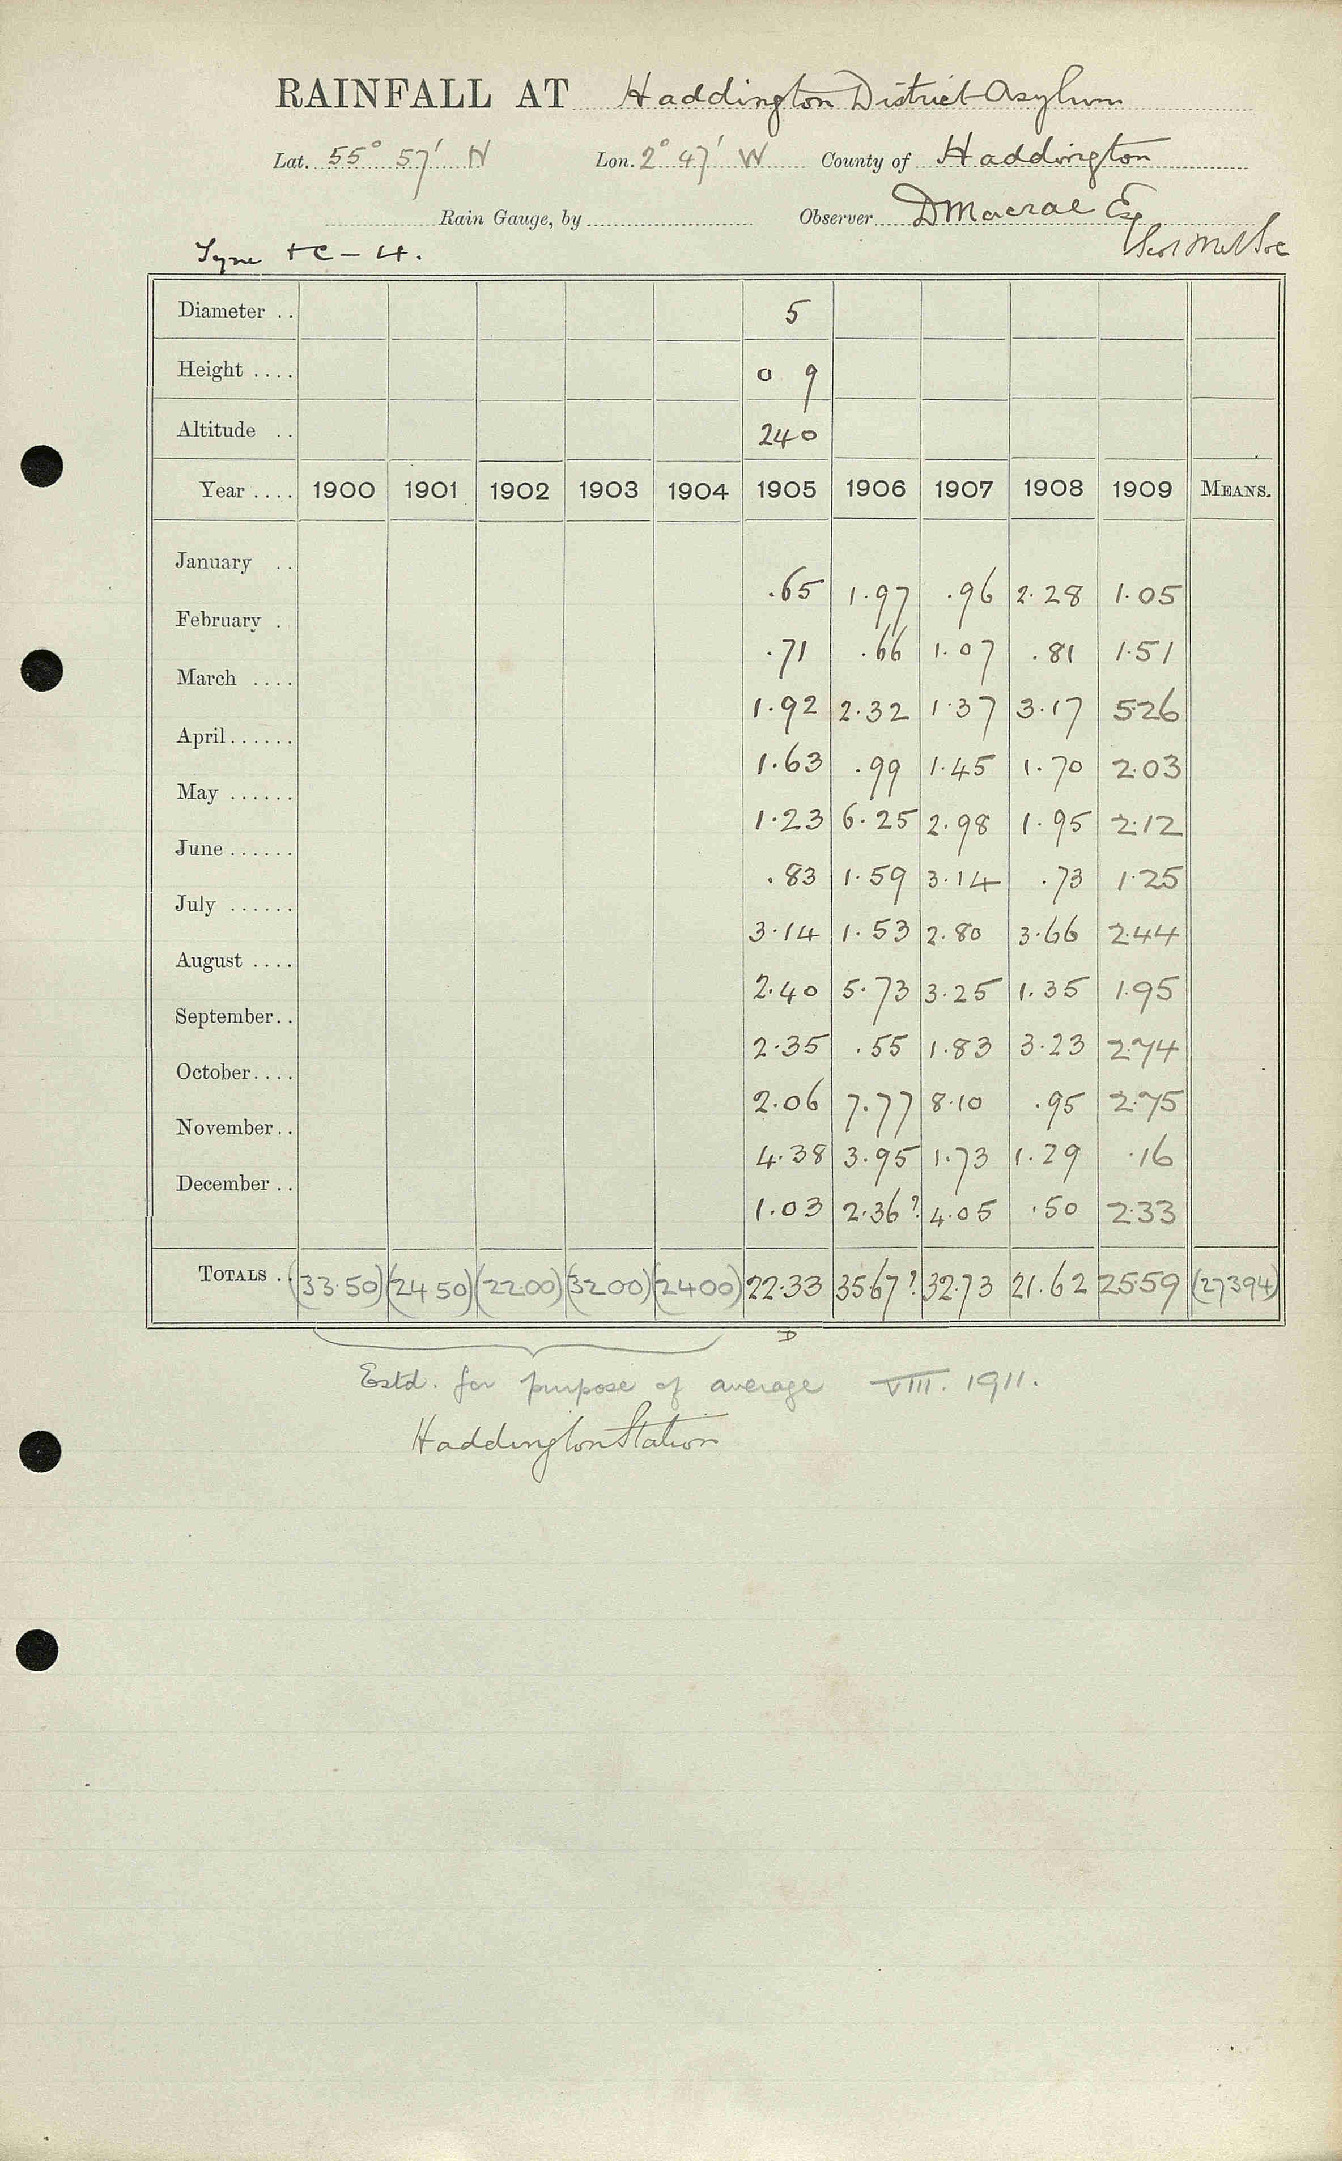 RAINFALL AT Haddington District Asylum
Lat. 55° 57' N Lon. 2° 47' W County of Haddington
Rain Gauge, by Observer D Macrae Esq
Tyne &c - 4. Scot Met Soc
Diameter .. 5
Height .... 0 9
Altitude .. 240
Year .... 1900 1901 1902 1903 1904 1905 1906 1907 1908 1909 MEANS.
January .. .65 1.97 .96 2.28 1.05
February . .71 .66 1.07 .81 1.51
March .... 1.92 2.32 1.37 3.17 5.26
April ...... 1.63 .99 1.45 1.70 2.03
May ...... 1.23 6.25 2.98 1.95 2.12
June ...... .83 1.59 3.14 .73 1.25
July ...... 3.14 1.53 2.80 3.66 2.44
August .... 2.40 5.73 3.25 1.35 1.95
September .. 2.35 .55 1.83 3.23 2.74
October .... 2.06 7.77 8.10 .95 2.75
November .. 4.38 3.95 1.73 1.29 .16
December .. 1.03 2.36? 4.05 .50 2.33
TOTALS .. (33.50) (24 50) (22.00) (32.00) (24.00) 22.33 35.67? 32.73 21.62 25.59 (273.94)
D
Estd. for purpose of average VIII. 1911.
Haddington Station